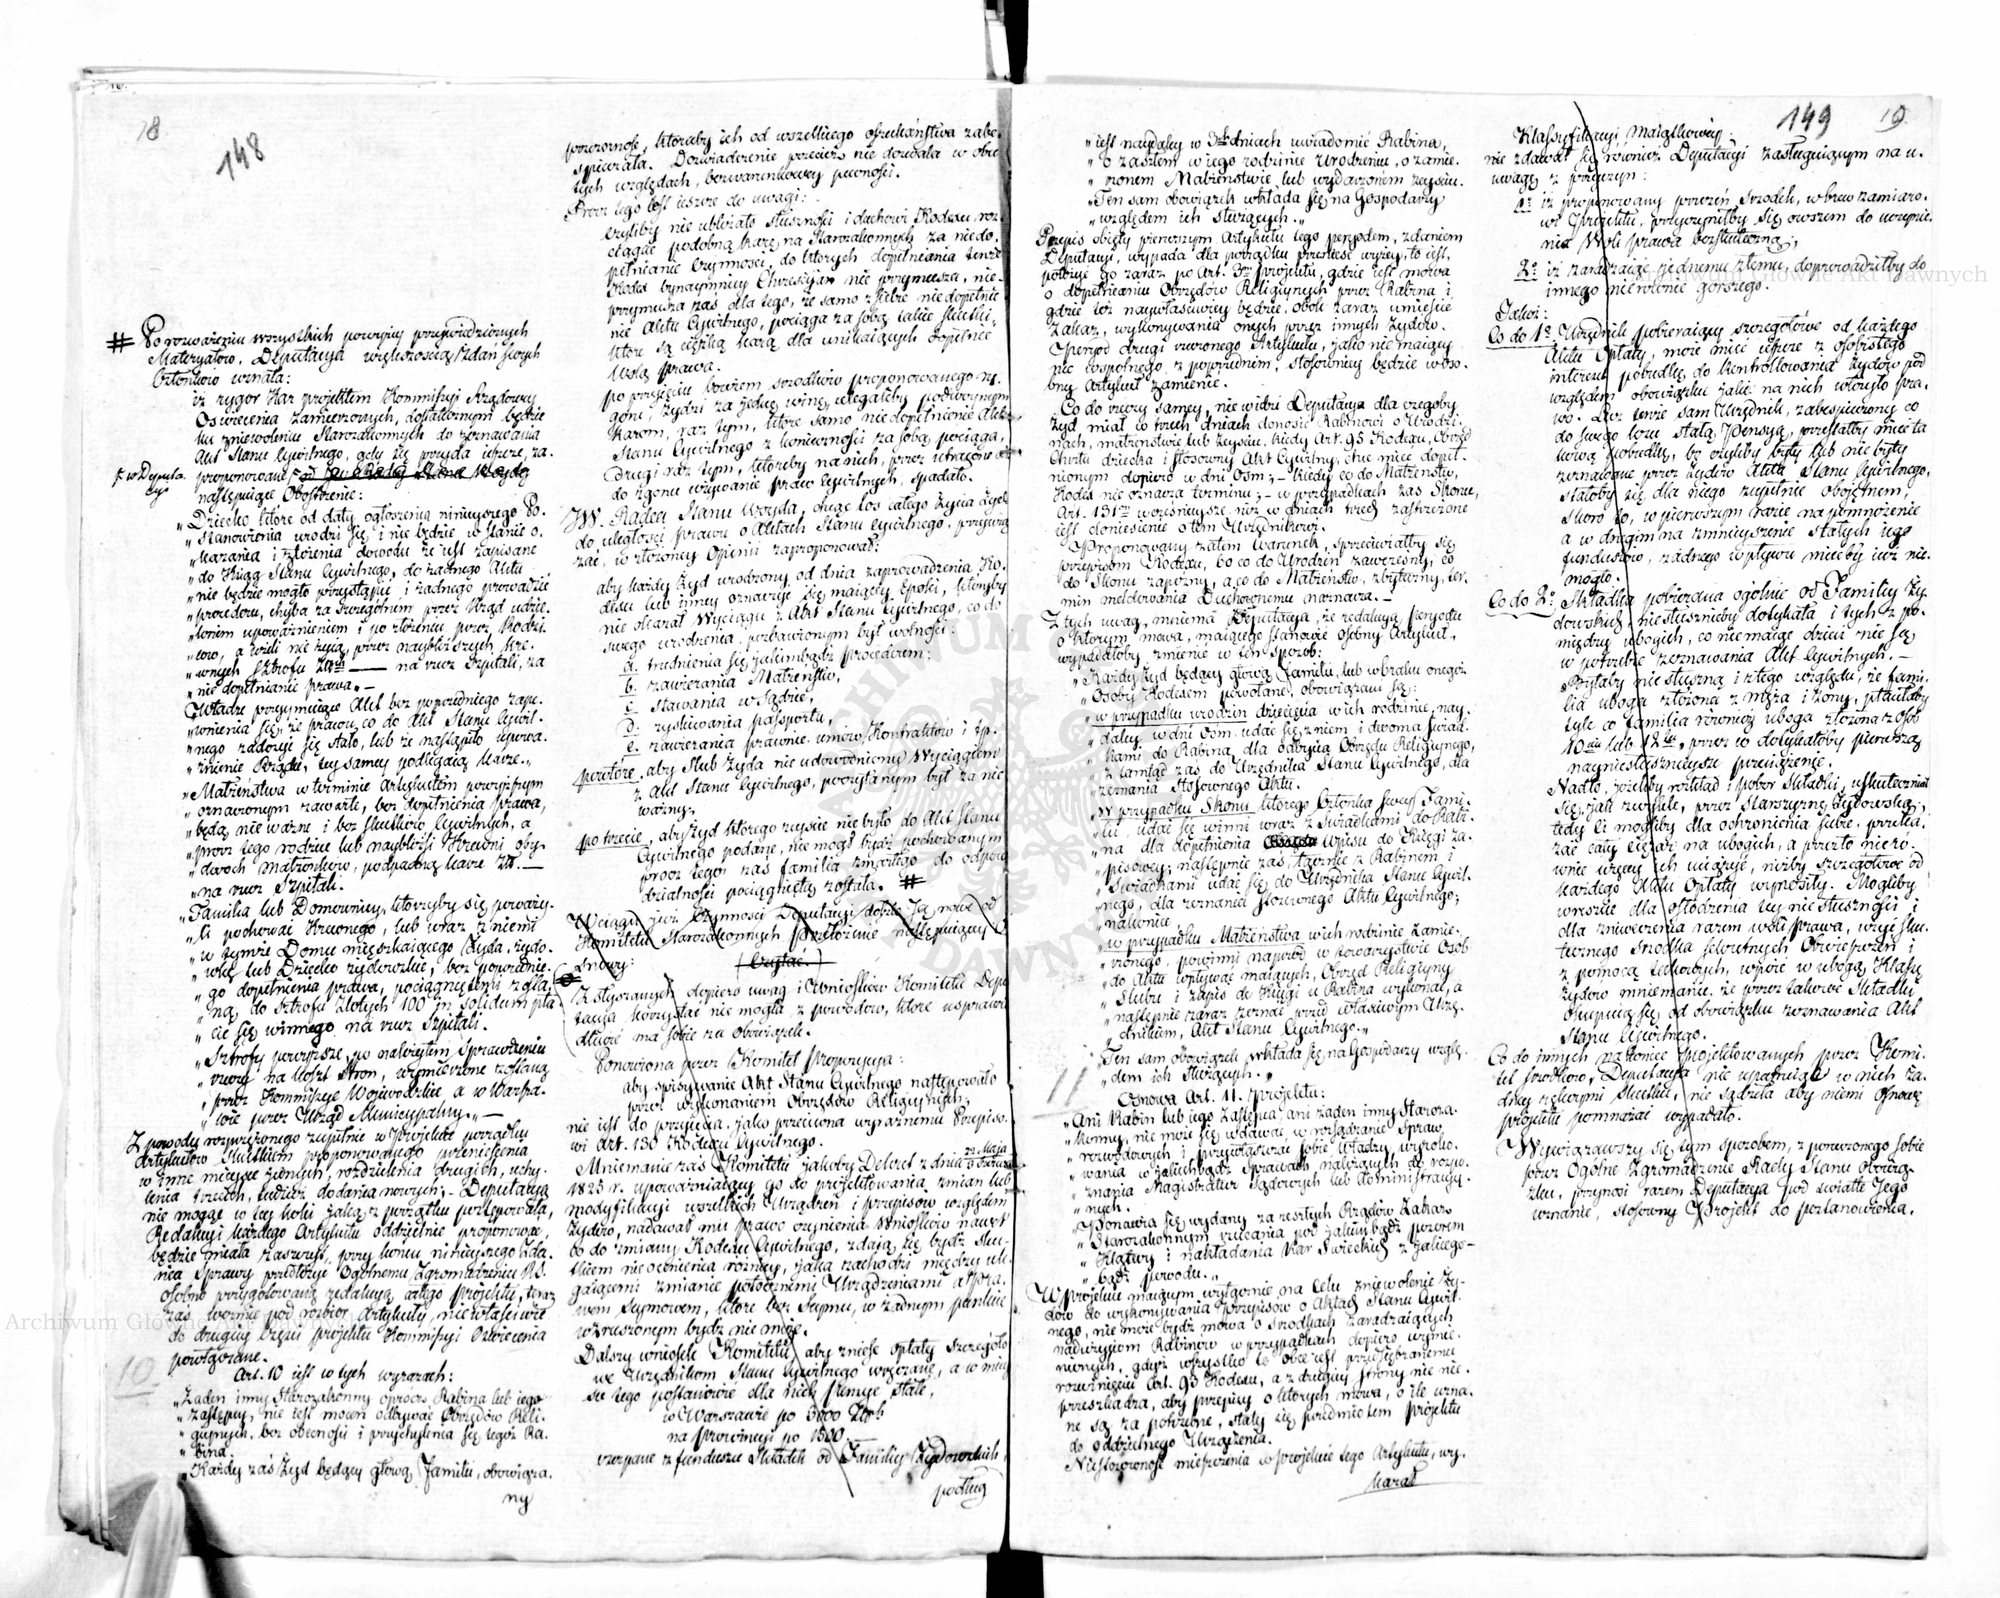 18
148
# Po rozważeniu wszystkich powyżey przywiedzionych
Materyałów, Deputacya większością zdań swych
Członków uznała:
iż rygor Kar projektem Kommissyi Rządowey
Oświecenia zamierzonych, dostatecznym będzie
ku zniewoleniu Starozakonnych do zeznawania
Akt Stanu Cywilnego, gdy się przyda jeszcze, za-
w Deputa-
cyi
proponowane
następujące Obostrzenie:
„Dziecko które od daty ogłoszenia ninieyszego Po-
„stanowienia urodzi się i nie będzie w stanie o-
„kazania i złożenia dowodu że jest zapisane
„do Xiąg Stanu Cywilnego, do żadnego Aktu
„nie będzie mogło przystąpić i żadnego prowadzić
„procederu, chyba za szczególnem przez Rząd udzie-
„lonem upoważnieniem i po złożeniu przez Rodzi-
„ców, a jeżeli nie żyią, przez naybliższych Kre-
„wnych sztrofu Złt — na rzecz Szpitali, za
„niedopełnianie prawa.„ —
„Władze przyymujące Akt bez poprzedniego zape-
„wnienia się, że prawu, co do Akt Stanu Cywil-
„nego zadosyć się stało, lub że nastąpiło upowa-
„żnienie Rządu, tey samey podlegaią karze.„
„Małżeństwa w terminie Artykułem powyższym
„oznaczonym zawarte, bez dopełnienia prawa,
„będą nieważne i bez skutków Cywilnych, a
„prócz tego rodzice lub naybliżsi Krewni oby-
„dwóch małżonków, podpadną karze Zł. —
„na rzecz Szpitali.
„Familia lub Domownicy, którzyby się poważy-
„li pochować Krewnego, lub wraz z niemi
„w tymże Domu mieszkaiącego Żyda, żydo-
„wkę lub Dziecko żydowskie, bez poprzednie-
„go dopełnienia prawa, pociągnięteni zosta-
„ną, do sztrofu Złotych 100 in solidum pła-
„cić się winnego na rzecz Szpitali.
„Sztrofy powyższe, po należytem sprawdzeniu
„rzeczy na koszt stron, wymierzone zostaną
„przez Kommissye Woiewodzkie, a w Warsza-
„wie przez Urząd Municypalny.„ —
Z powodu rozprzężonego zupełnie w Projekcie porządku
Artykułów skutkiem proponowanego przeniesienia
w inne mieysce jednych, rozdzielenia drugich, uchy-
lenia trzecich, tudzież dodania nowych; — Deputacya
nie mogąc w tey kolei jaką z porządku postępowała,
Redakcyi każdego Artykułu oddzielnie proponować,
będzie miała zaszczyt, przy końcu ninieyszego zda-
nia Sprawy przedłożyć Ogólnemu Zgromadzeniu R.S.
osobno przygotowaną redakcyą całego projektu, teraz
zaś weźmie pod rozbior Artykuły, niewłaściwie
do drugiey części projektu Kommissyi Oświecenia
powciągane.
10.
Art. 10 jest w tych wyrazach:
„Żaden inny Starozakonny oprócz Rabina lub jego
„zastępcy, nie jest mocen odbywać Obrzędów Reli-
„giynych, bez obecności i przychylenia się tegoż Ra-
„bina.
„Każdy zaś Żyd będący głową Familii, obowiąza-
ny
przezorność, któraby ich od wszelkiego oszukaństwa zabe-
spieczała. Doświadczenie przecież nie dozwala w obu
tych względach, bezwarunkowey pewności.
Prócz tego jest jeszcze do uwagi:
czyliby nie ubliżało słuszności i duchowi Kodexu roz-
ciągać podobną karę na Starozakonnych za niedo-
pełnianie czynności, do których dopełniania tenże
Kodex bynaymniey Chrześcijan nie przymusza, nie-
przymusza zaś dla tego, że samo z siebie niedopełnie-
nie Aktu Cywilnego, pociąga za sobą takie skutki,
które są ciężką karą dla unikaiących dopełnić
wolą prawa.
po przyjęciu bowiem środków proponowanego ry-
goru, Żydzi za jednę winę, ulegaliby podwóynym
Karom, raz tym, które samo niedopełnienie Aktu
Stanu Cywilnego z konieczności za sobą pociąga,
Drugi raz tym, któreby na nich, przez utracone
do zgonu używanie praw Cywilnych, spadało.
JW. Radca Stanu Woyda, chcąc los całego życia Żyda
do uległości prawu o Aktach Stanu Cywilnego, przywią-
zać, w złożoney Opinii zaproponował:
aby każdy Żyd urodzony od dnia zaprowadzenia Ko-
dexu lub inney oznaczyć się maiącey Epoki, któryby
nie okazał Wyciągu z Akt Stanu Cywilnego, co do
swego urodzenia, pozbawionym był wolności:
a. trudnienia się jakimbądź procederem:
b. zawierania Małżeństw,
c. stawania w Sądzie,
d. zyskiwania passportu,
e. zawierania prawnie umów, Kontraktów i t.p.
powtóre, aby Ślub Żyda nie udowodniony Wyciągiem
z Akt Stanu Cywilnego, poczytanym był za nie
ważny;
po trzecie, aby Żyd którego zeyście nie było do Akt Stanu
Cywilnego podane, nie mógł bydź pochowanym
prócz tego zaś familia zmarłego do odpowie-
dzialności pociągniętą została. #
Wciągu już Czynności Deputacyi doszło Ją nowe od
Komitetu Starozakonnych przełożenie następuiącey
Osnowy:
(Czytać.)
Z słyszanych dopiero uwag i Wniosków Komitetu Depu-
tacya korzystać nie mogła z powodów, które usprawie-
dliwić ma sobie za obowiązek.
Ponowiona przez Komitet Propozycya:
aby spisywanie Akt Stanu Cywilnego następowało
przed wykonaniem Obrzędów Religiynych;
nie jest do przyjęcia, jako przeciwna wyraźnemu Przepiso-
wi Art. 130 Kodexu Cywilnego.
Mniemanie zaś Komitetu jakoby Dekret z dnia 22 Maja
1825 r. upoważniający go do projektowania zmian lub
modyfikacyi wszelkich Urządzeń i przepisów względem
Żydów, nadawał mu prawo czynienia wniosków nawet
co do zmiany Kodexu Cywilnego, zdaią się bydź sku-
tkiem nieocenienia różnicy, jaka zachodzi między ule-
gaiącemi zmianie potocznemi Urządzeniami a Pra-
wem Seymowem, które bez Seymu, w żadnym punkcie
wzruszonem bydź nie może.
Dalszy wniosek Komitetu, aby znieść opłaty szczegóło-
we Urzędnikom Stanu Cywilnego uiszczane, a w miey-
sce tego postanowić dla nich Pensye stałe,
w Warszawie po 3000 Złp
na prowincyi po 1500.
czerpane z funduszu Składek od Familiy Żydowskich,
podług
149
19.
„jest naydaley w 3ch dniach uwiadomić Rabina,
„o zaszłem w jego rodzinie Urodzeniu, o zamie-
„rzonem Małżeństwie lub wydarzonem zeyściu.
„Ten sam obowiązek wkłada się na Gospodarzy
„względem ich służących.„
Przepis objęty pierwszym Artykułu tego peryodem, zdaniem
Deputacyi, wypada dla porządku przenieść wyżey, to jest,
położyć go zaraz po Art. 3m projektu, gdzie jest mowa
o dopełnianiu Obrzędów Religiynych przez Rabina i
gdzie też naywłaściwiey będzie, obok zaraz umieścić
Zakaz, wykonywania onych przez innych Żydów.
Peryod drugi rzeczonego Artykułu, jako nie maiący
nic wspólnego z poprzednim, stosowniey będzie w oso-
bny Artykuł zamienić.
Co do rzeczy samey, nie widzi Deputacya dla czegoby
Żyd miał w trzech dniach donosić Rabinowi o Urodzi-
nach, małżeństwie lub zeyściu, kiedy Art. 95 Kodexu, Obrzęd
Chrztu dziecka i stosowny Akt Cywilny, chce mieć dopeł-
nionym dopiero w dni Ośm; — kiedy co do Małżeństw,
Kodex nie oznacza terminu; — w przypadkach zaś Skonu,
Art. 131 wcześnieysze, niż w dniach trzech zastrzeżone
jest doniesienie o tem Urzędnikowi.
Proponowany zatem Warunek, sprzeciwiałby się
przepisom Kodexu, bo co do Urodzeń zawczesny, co
do Skonu zapóźny, a co do Małżeństw, zbyteczny, ter-
min meldowania Duchownemu naznacza. —
Z tych uwag, mniema Deputacya, że redakcyą peryodu
o którym mowa, maiącego stanowić osobny Artykuł,
wypadałoby zmienić w ten sposób:
„Każdy Żyd będący głową Familii, lub w braku onegoż
„Osoby Kodexem powołane, obowiązani są:
„w przypadku urodzin dziecięcia w ich rodzinie, nay-
„daley w dni Ośm, udać się z niem i dwoma świad-
„kami do Rabina, dla odbycia Obrzędu Religiynego,
„z tamtąd zaś do Urzędnika Stanu Cywilnego, dla
„zeznania stosownego Aktu.
„W przypadku Skonu którego Członka swey Fami-
„lii, udać się winni wraz z świadkami do Rabi-
„na dla dopełnienia wpisu do Księgi za-
„pisowey; następnie zaś, łącznie z Rabinem i
„świadkami udać się do Urzędnika Stanu Cywil-
„nego, dla zeznania stosownego Aktu Cywilnego;
„nakoniec
„w przypadku Małżeństwa w ich rodzinie zamie-
„rzonego, powinni naprzód w towarzystwie Osób
„do Aktu wpływać maiących, Obrzęd Religiyny
„Ślubu i zapis do Księgi u Rabina wykonać, a
„następnie zaraz zeznać przed właściwym Urzę-
„dnikiem, Akt Stanu Cywilnego.„
„Ten sam obowiązek wkłada się na Gospodarzy wzglę-
„dem ich służących.„
11
Osnowa Art. 11. projektu:
„Ani Rabin lub jego Zastępca ani żaden inny Staroza-
„konny, nie może się wdawać w rozsądzanie Spraw
„rozwodowych i przywłaszczać sobie Władzy, wyroko-
„wania w jakichbądź Sprawach należących do rozpo-
„znania Magistratur Sądowych lub Administracyy-
„nych.
„Ponawia się wydany za zeszłych Rządów Zakaz
„Starozakonnym rzucania pod jakimbądź pozorem
„Klątwy i nakładania Kar Świeckich z jakiego-
„bądź powodu.„
W projekcie maiącym wyłącznie na Celu zniewolenie Ży-
dów do wykonywania Przepisów o Aktach Stanu Cywil-
nego, nie może bydź mowa o środkach zaradzaiących
nadużyciom Rabinów w przypadkach dopiero wymie-
nionych, gdyż wszystko to obce jest przedsięwziętemu
rozwinięciu Art. 93 Kodexu, a z drugiey strony nic nie-
przeszkadza, aby przepisy o których mowa, o ile uzna-
ne są za potrzebne, stały się przedmiotem projektu
do oddzielnego Urządzenia.
Niestosowność mieszczenia w projekcie tego Artykułu, wy-
kazał
Klassyfikacyi Maiątkowey:
nie zdawał się również Deputacyi zasługuiącym na u-
wagę z przyczyn:
1o iż proponowany przezeń środek, wbrew zamiaro-
wi Projektu, przyczyniłby się owszem do uczynie-
nia Woli prawa bezskuteczną;
2o iż zaradzaiąc jednemu złemu, doprowadziłby do
innego nierównie gorszego.
Jakoż:
Co do 1o Urzędnik pobieraiący szczegółowo od każdego
Aktu Opłatę, może mieć jeszcze z osobistego
interessu pobudkę do kontrollowania Żydów pod
względem obowiązku jaki na nich włożyło pra-
wo. Lecz tenże sam Urzędnik, zabespieczony co
do swego losu stałą Pensyą, przestałby mieć ta-
kową pobudkę, bo czyliby były lub nie były
zeznawane przez Żydów Akta Stanu Cywilnego,
stałoby się dla niego zupełnie obojętnem,
skoro to, w pierwszym razie na pomnożenie
a w drugim na zmnieyszenie stałych jego
funduszów, żadnego wpływu mieć by już nie
mogło.
Co do 2o Składka pobierana ogólnie od Familiy Ży-
dowskich niesłusznieby dotykała i tych z po-
między ubogich, co nie maiąc dzieci nie są
w potrzebie zeznawania Akt Cywilnych. —
Byłaby niesłuszną i z tego względu, że fami-
lia uboga złożona z męża i żony, płaciłaby
tyle co familia również uboga złożona z osób
10ciu lub 12stu, przez co dotykałoby pierwszą
nayniesłusznieysze przeciążenie.
Nadto, jeżeliby rozkład i pobór składki, uskuteczniał
się, jak zwykle, przez Starszyznę Żydowską,
tedy ci mogliby dla ochronienia siebie, przeka-
zać cały ciężar na ubogich, a przez to nieró-
wnie więcey ich uciążyć, niżby szczegółowe od
każdego Aktu Opłaty wynosiły. Mogliby
wreszcie dla osłodzenia tey niesłuszności i
dla zniweczenia razem woli prawa, użyć sku-
tecznego środka sekretnych Obwieszczeń i
z pomocą techowych, wpóić w ubogą klassę
Żydów mniemanie, że przez takową Składkę
okupuią się od obowiązku zeznawania Akt
Stanu Cywilnego.
Co do innych nakoniec projektowanych przez Komi-
tet środków, Deputacya nie upatruiąc w nich ża-
dney rękoymi skutku, nie sądziła aby niemi Osnowę
projektu pomnażać wypadało.
Wywiązawszy się tym sposobem, z poruczonego sobie
przez Ogólne Zgromadzenie Rady Stanu obowią-
zku, przynosi razem Deputacya pod światłe Jego
uznanie, stosowny Projekt do postanowienia.
Archiwum Główne Akt Dawnych
Archiwum Główne Akt Dawnych
ARCHIWUM GŁÓWNE AKT DAWNYCH